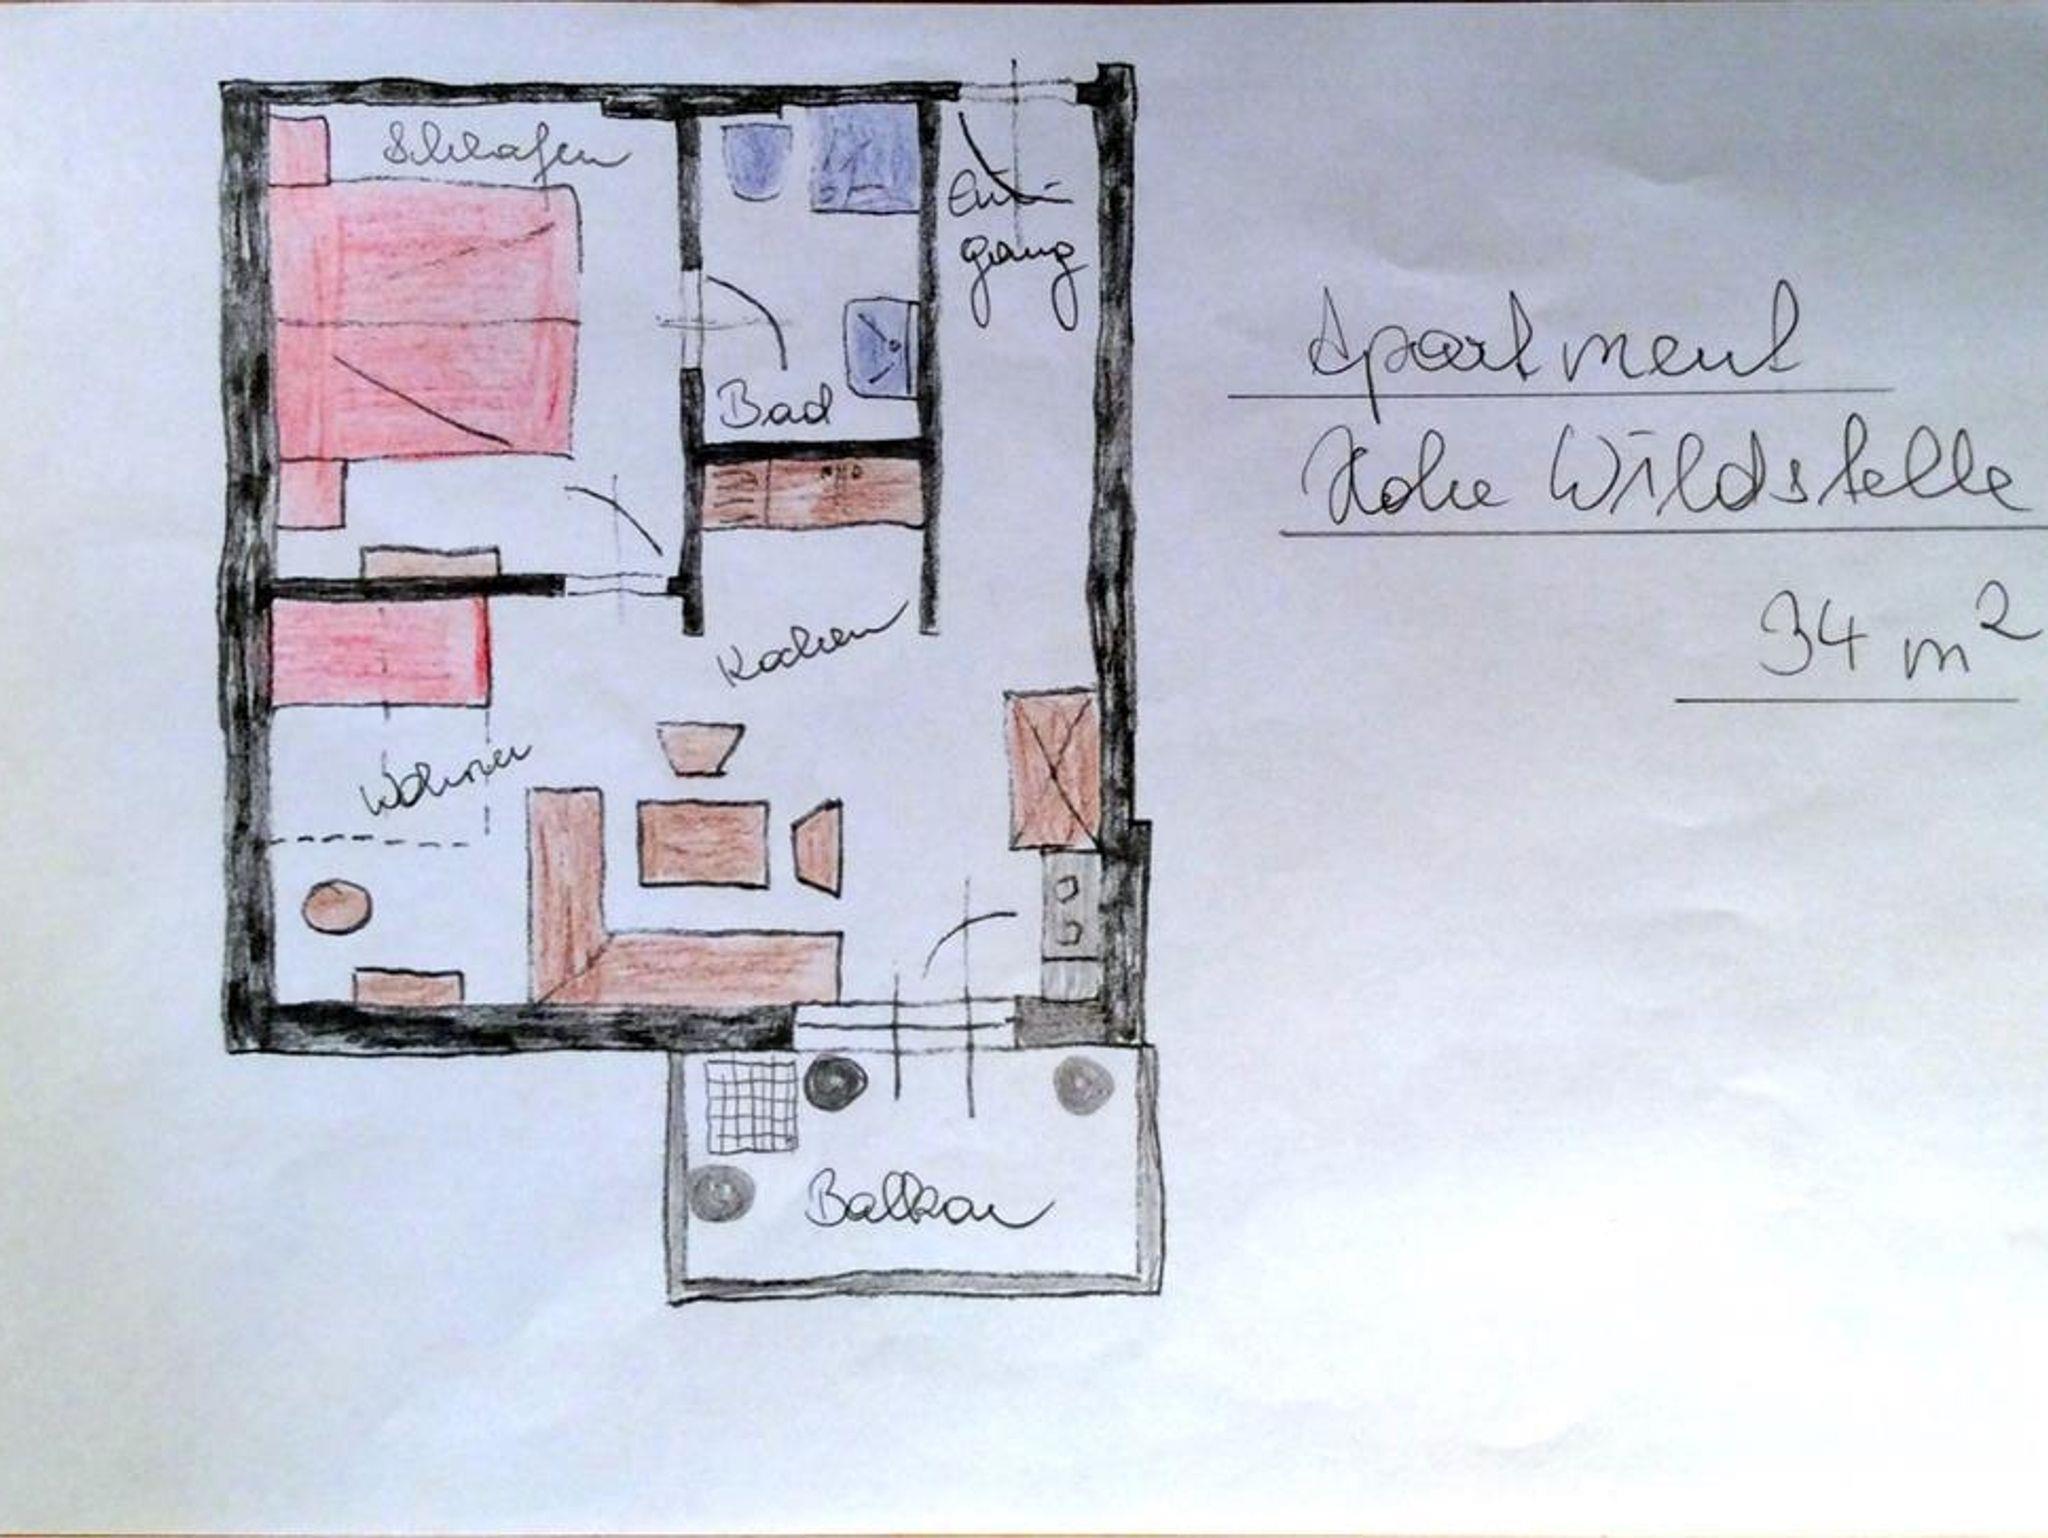 Schlafen
Ein-
gang
Bad
Kochen
Wohnen
Balkon
Apartment
Hohe Wildstelle
34 m²